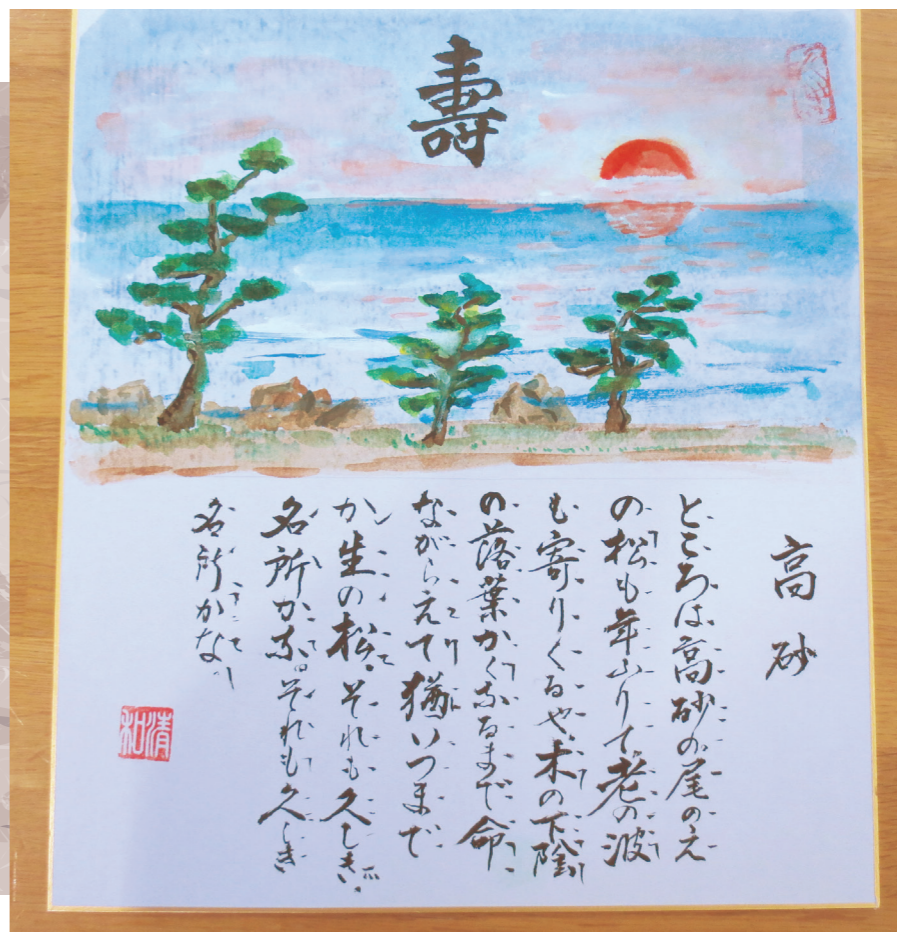 壽
高砂
ところは高砂の尾のえ
の松も年ふりて老の波
も寄りくるや木の下陰
の落葉かくなるまで命
ながらえて猶いつまで
か生の松。それも久しき
名所かな。それも久しき
名所かな
清和